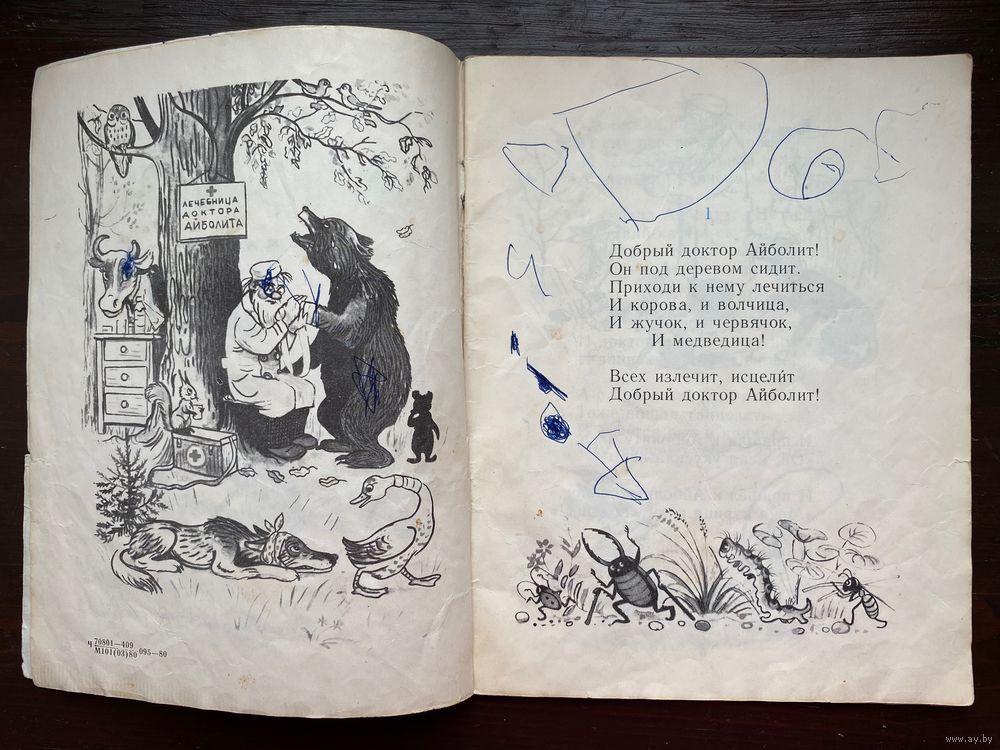 ЛЕЧЕБНИЦА
ДОКТОРА
АЙБОЛИТА
Ч 70801—409
М101(03)80 095—80
1
Добрый доктор Айболит!
Он под деревом сидит.
Приходи к нему лечиться
И корова, и волчица,
И жучок, и червячок,
И медведица!
Всех излечит, исцели́т
Добрый доктор Айболит!
www.ay.by